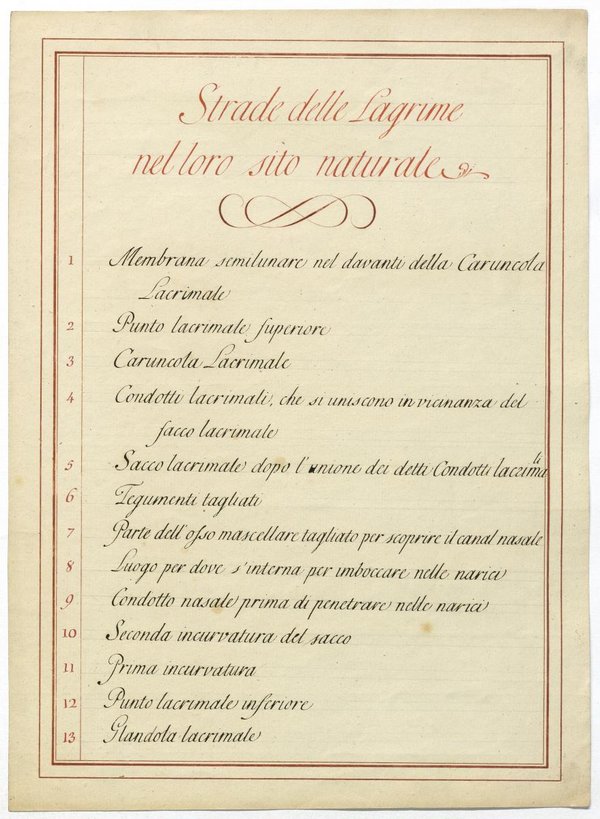 Strade delle Lagrime
nel loro sito naturale
1 Membrana semilunare nel davanti della Caruncola
Lacrimale
2 Punto lacrimale superiore
3 Caruncola Lacrimale
4 Condotti lacrimali, che si uniscono in vicinanza del
sacco lacrimale
5 Sacco lacrimale dopo l'unione dei detti Condotti lacrimali
6 Tegumenti tagliati
7 Parte dell'osso mascellare tagliato per scoprire il canal nasale
8 Luogo per dove s'interna per imboccare nelle narici
9 Condotto nasale prima di penetrare nelle narici
10 Seconda incurvatura del sacco
11 Prima incurvatura
12 Punto lacrimale inferiore
13 Glandola lacrimale